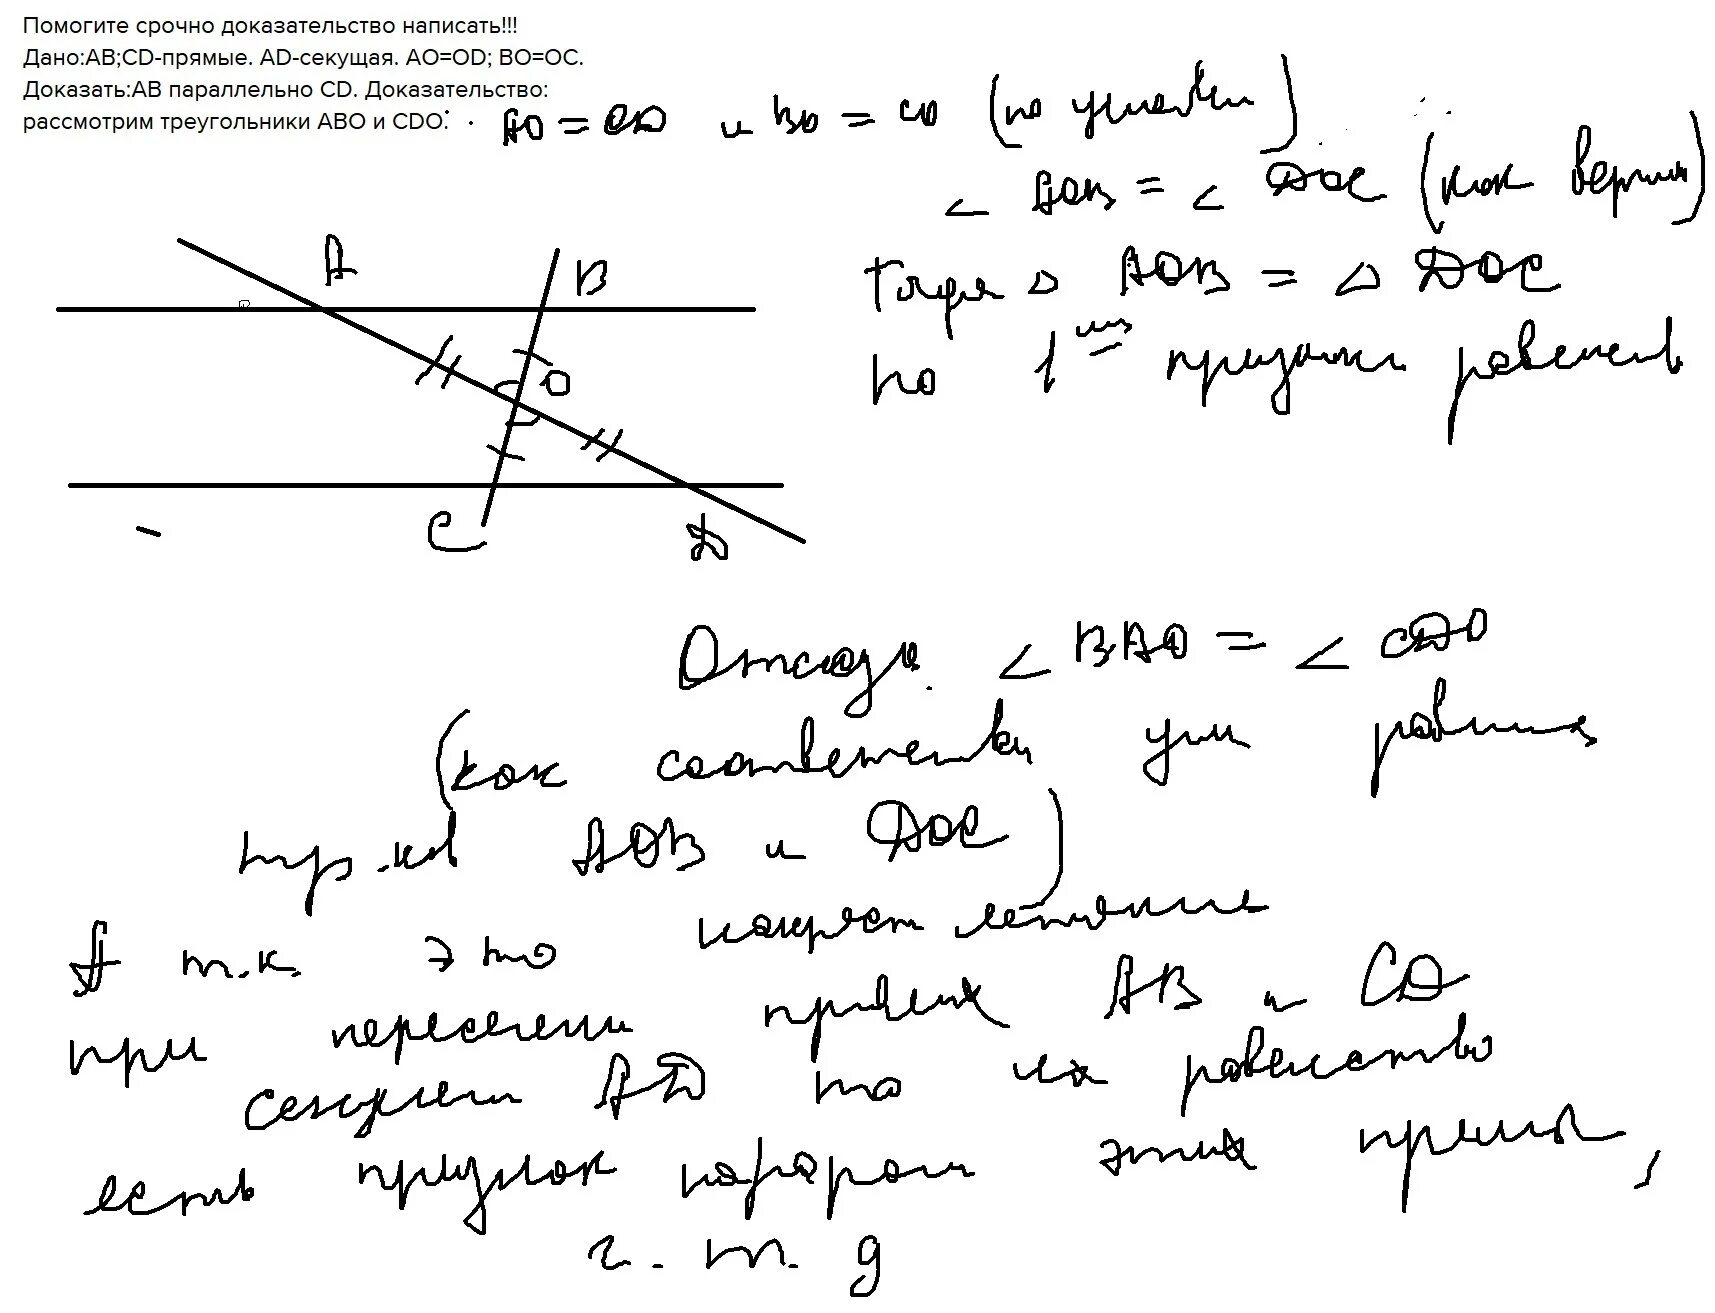 Помогите срочно доказательство написать!!!
Дано:AB;CD-прямые. AD-секущая. AO=OD; BO=OC.
Доказать:AB параллельно CD. Доказательство:
рассмотрим треугольники ABO и CDO:
AO = OD и BO = CO (по условию)
∠ AOB = ∠ DOC (как вертик)
Тогда △ AOB = △ DOC
по 1 признаку равенств
A
B
O
C
D
Отсюда ∠ BAO = ∠ CDO
(как соответств углы равных
тр.ков AOB и DOC)
А т.к. это накрест лежащие
при пересечении прямых AB и CD
секущей AD то их равенство
есть признак паралл этих прямых,
ч.т.д